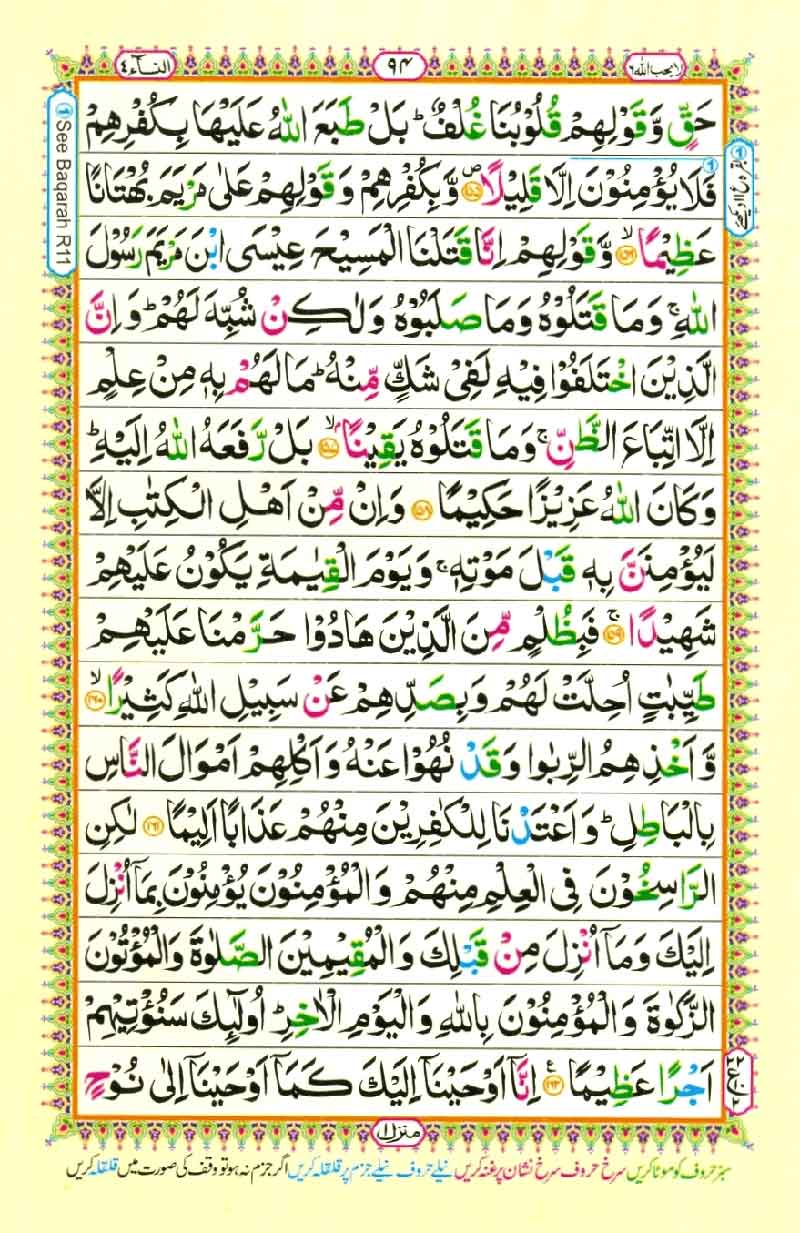 لا یحب اللہ ٦
٩٤
النسآء ٤
حَقٍّ وَّقَوْلِهِمْ قُلُوْبُنَا غُلْفٌ ؕ بَلْ طَبَعَ اللّٰهُ عَلَیْهَا بِكُفْرِهِمْ
فَلَا یُؤْمِنُوْنَ اِلَّا قَلِیْلًا ۪﴿۱۵۵﴾ وَّبِكُفْرِهِمْ وَقَوْلِهِمْ عَلٰی مَرْیَمَ بُهْتَانًا
عَظِیْمًا ۙ﴿۱۵۶﴾ وَّقَوْلِهِمْ اِنَّا قَتَلْنَا الْمَسِیْحَ عِیْسَی ابْنَ مَرْیَمَ رَسُوْلَ
اللّٰهِ ۚ وَمَا قَتَلُوْهُ وَمَا صَلَبُوْهُ وَلٰكِنْ شُبِّهَ لَهُمْ ؕ وَاِنَّ
الَّذِیْنَ اخْتَلَفُوْا فِیْهِ لَفِیْ شَكٍّ مِّنْهُ ؕ مَا لَهُمْ بِهٖ مِنْ عِلْمٍ
اِلَّا اتِّبَاعَ الظَّنِّ ۚ وَمَا قَتَلُوْهُ یَقِیْنًا ۙ﴿۱۵۷﴾ بَلْ رَّفَعَهُ اللّٰهُ اِلَیْهِ ؕ
وَكَانَ اللّٰهُ عَزِیْزًا حَكِیْمًا ﴿۱۵۸﴾ وَاِنْ مِّنْ اَهْلِ الْكِتٰبِ اِلَّا
لَیُؤْمِنَنَّ بِهٖ قَبْلَ مَوْتِهٖ ۚ وَیَوْمَ الْقِیٰمَةِ یَكُوْنُ عَلَیْهِمْ
شَهِیْدًا ۚ﴿۱۵۹﴾ فَبِظُلْمٍ مِّنَ الَّذِیْنَ هَادُوْا حَرَّمْنَا عَلَیْهِمْ
طَیِّبٰتٍ اُحِلَّتْ لَهُمْ وَبِصَدِّهِمْ عَنْ سَبِیْلِ اللّٰهِ كَثِیْرًا ۙ﴿۱۶۰﴾
وَّاَخْذِهِمُ الرِّبٰوا وَقَدْ نُهُوْا عَنْهُ وَاَكْلِهِمْ اَمْوَالَ النَّاسِ
بِالْبَاطِلِ ؕ وَاَعْتَدْنَا لِلْكٰفِرِیْنَ مِنْهُمْ عَذَابًا اَلِیْمًا ﴿۱۶۱﴾ لٰكِنِ
الرَّاسِخُوْنَ فِی الْعِلْمِ مِنْهُمْ وَالْمُؤْمِنُوْنَ یُؤْمِنُوْنَ بِمَاۤ اُنْزِلَ
اِلَیْكَ وَمَاۤ اُنْزِلَ مِنْ قَبْلِكَ وَالْمُقِیْمِیْنَ الصَّلٰوةَ وَالْمُؤْتُوْنَ
الزَّكٰوةَ وَالْمُؤْمِنُوْنَ بِاللّٰهِ وَالْیَوْمِ الْاٰخِرِ ؕ اُولٰٓئِكَ سَنُؤْتِیْهِمْ
اَجْرًا عَظِیْمًا ﴿۱۶۲﴾ ع اِنَّاۤ اَوْحَیْنَاۤ اِلَیْكَ كَمَاۤ اَوْحَیْنَاۤ اِلٰی نُوْحٍ
See Baqarah R11
٢٢
ع
٢
منزل ١
سبز حروف کو موٹا کریں سرخ حروف سرخ نشان پر غنہ کریں نیلے حروف نیلے جزم پر قلقلہ کریں اگر جزم نہ ہو تو وقف کی صورت میں قلقلہ کریں